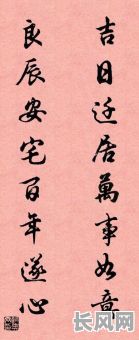 吉日迁居萬事如意
良辰安宅百年遂心
長风网